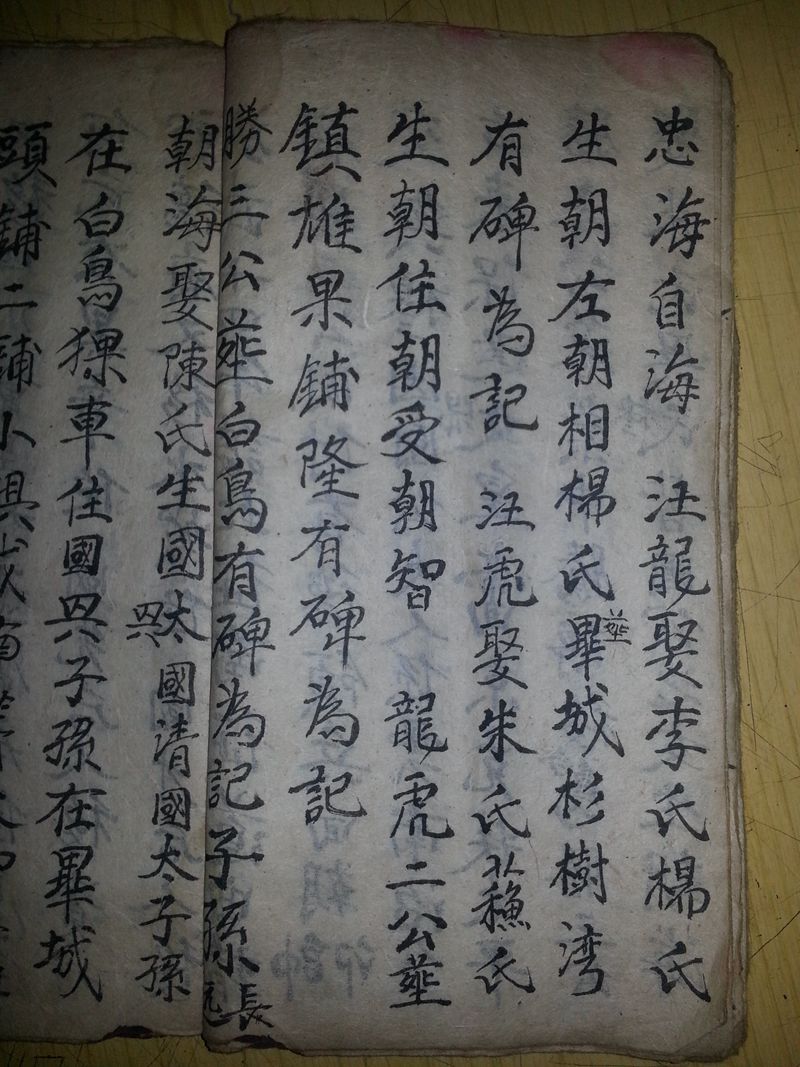 忠海自海 汪龍娶李氏楊氏
生朝左朝相楊氏塟畢城杉樹湾
有碑為記 汪虎娶朱氏以穐氏
生朝住朝受朝智 龍虎二公塟
鎮雄果鋪隆有碑為記
勝三公塟白鳥有碑為記子孫長
朝海娶陳氏生國太國清國太子孫
在白鳥猓車住國興子孫在畢城
頭鋪二鋪小